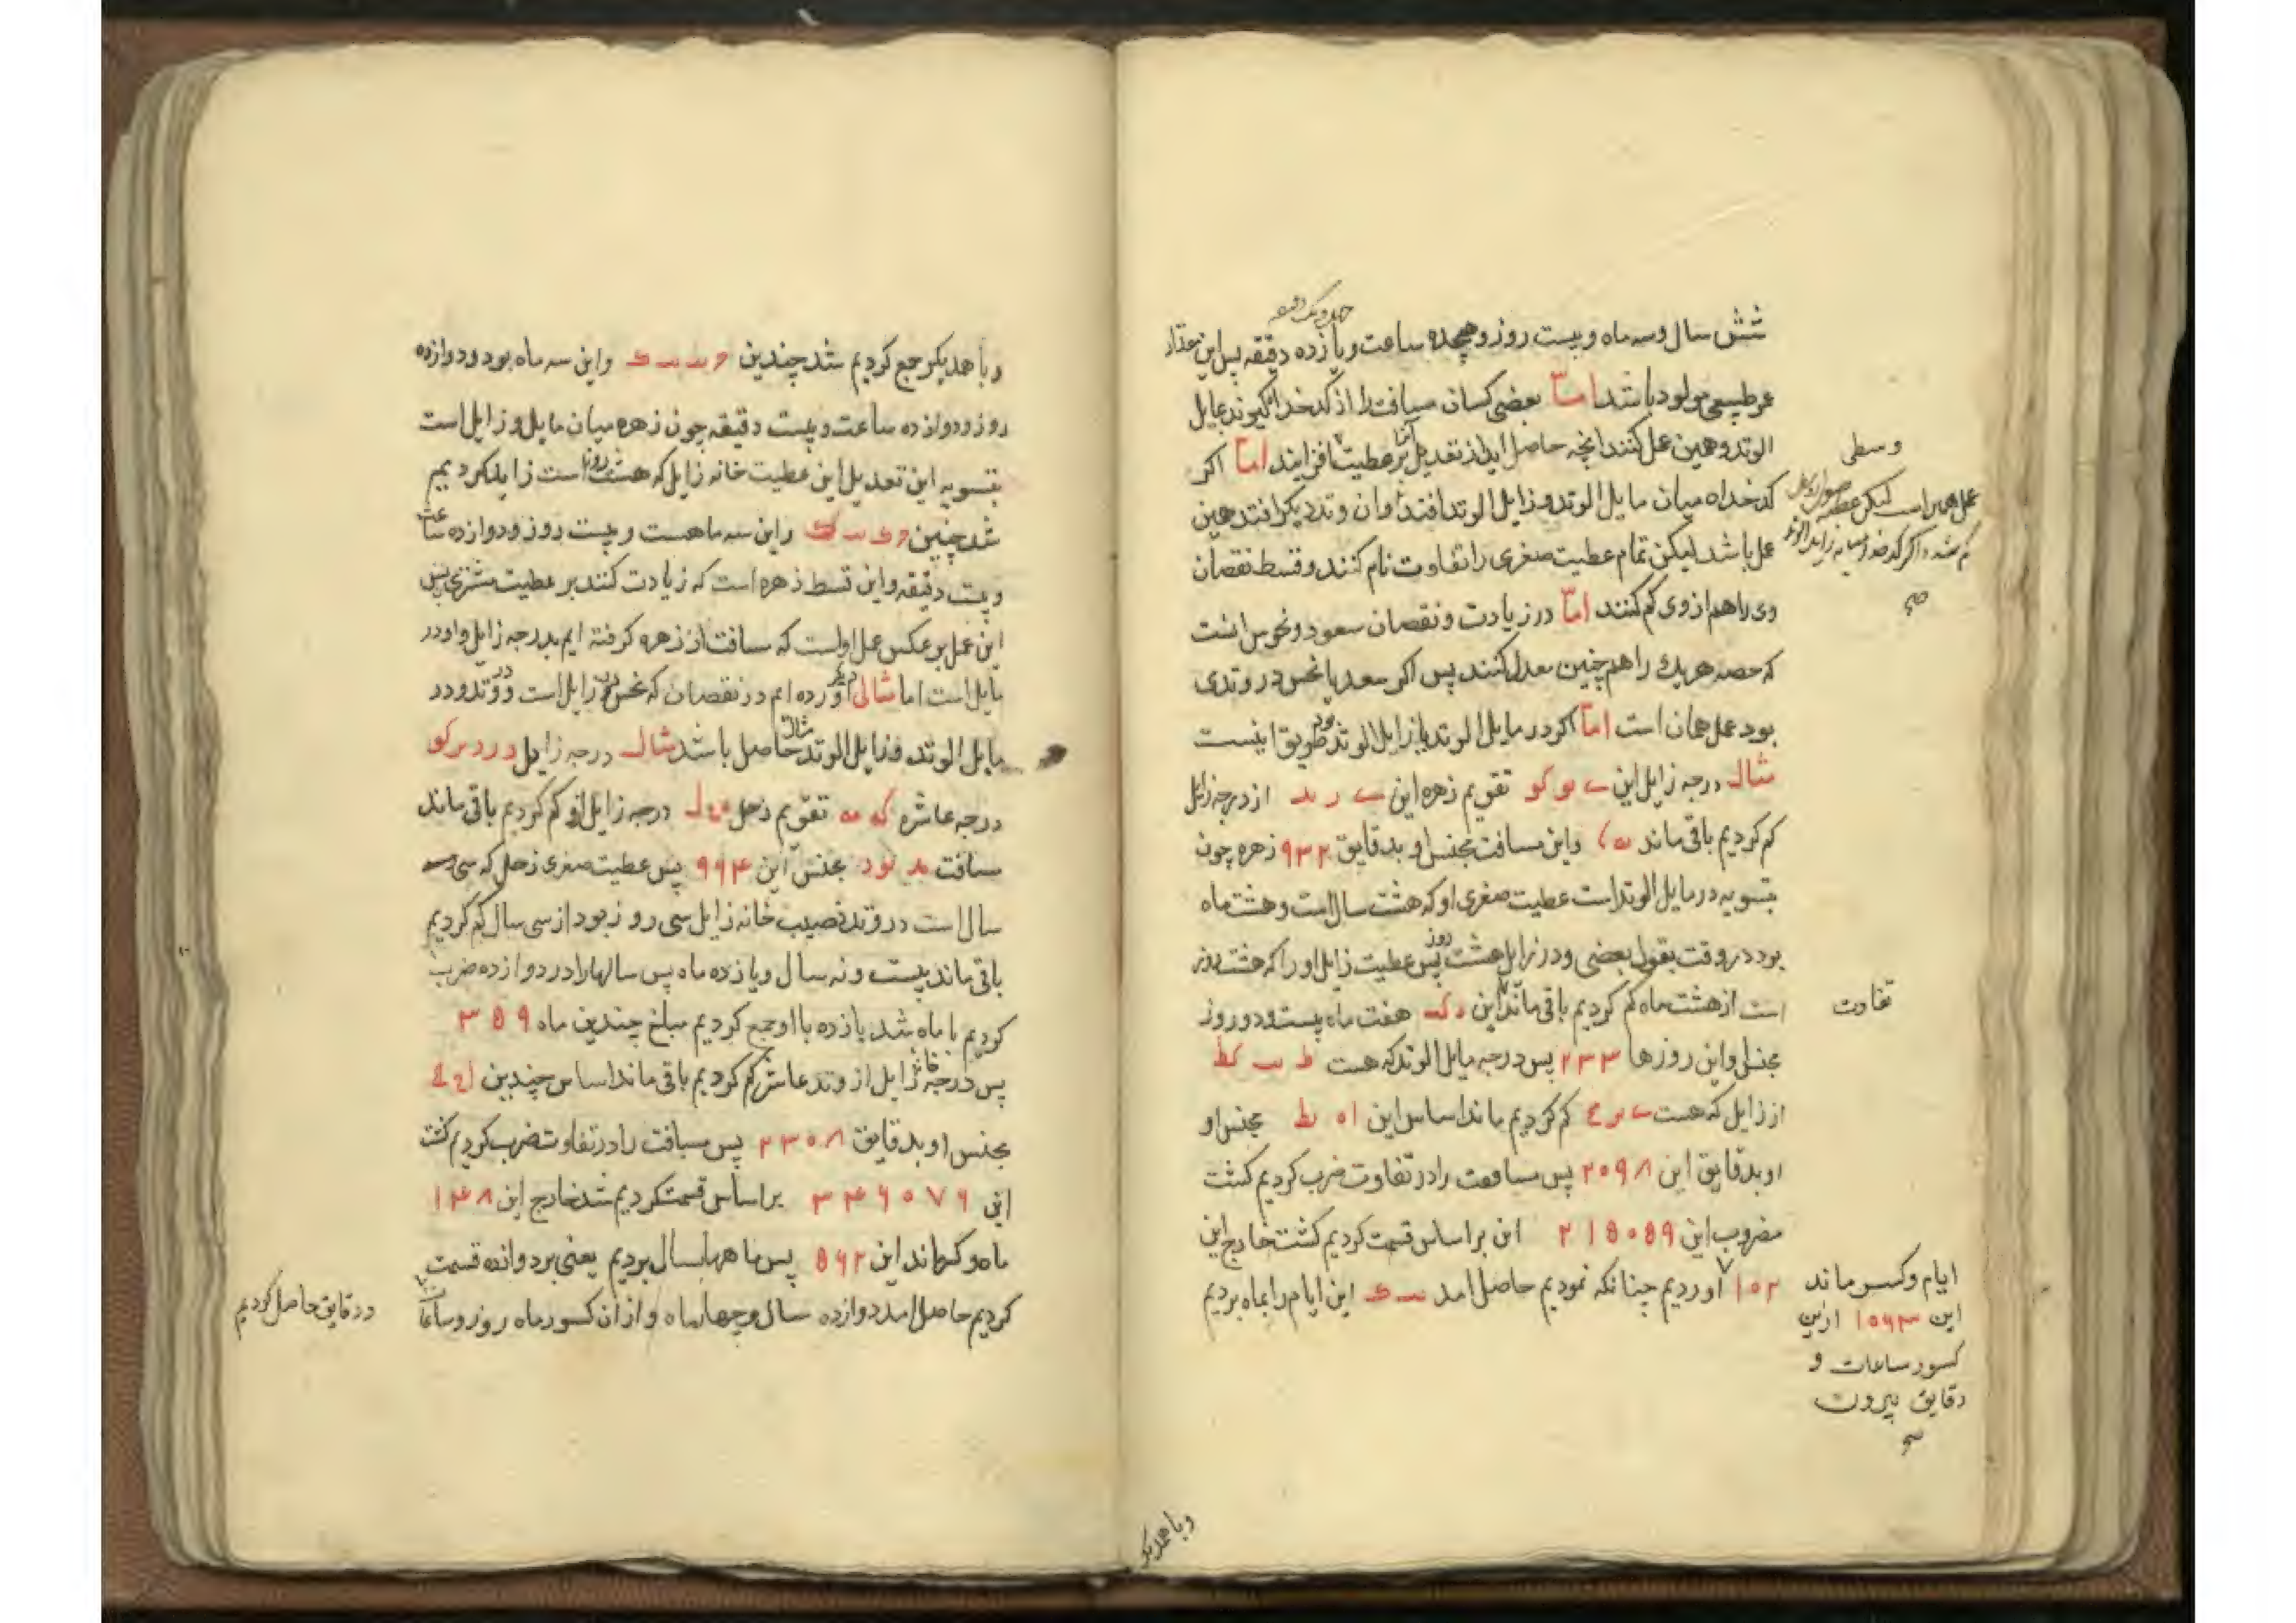 شش سال و سه ماه و بیست روز و هیجده ساعت و یازده دقیقه پس این مقدار
عمر طبیعی مولود باشد اما بعضی کسان مسافت را از کدخدا گیرند بمایل
الوتد و همین عمل کنند انچه حاصل اید از تعدیل بر عطیت افزایند اما اکر
کدخداه میان مایل الوتد و زایل الوتد افتد تا وان وتد دیکر افتد همین
عمل باشد لیکن تمام عطیت صغری را تفاوت نام کنند و قسط نقصان
وی را هم از وی کم کنند اما در زیادت و نقصان سعود و نحوس انست
که حصه هر یک را همچنین معدل کنند پس اکر سعد یا نحس در وتدی
بود عمل همان است اما اکر در مایل الوتد یا زایل الوتد بود طریق اینست
مثال درجه زایل این تقویم زهره این از درجه زایل
کم کردیم باقی ماند واین مسافت مجنس او بدقایق ۹۳۲ زهره چون
بتسویه در مایل الوتد است عطیت صغری او که هشت سال است و هشت ماه
بود در وقت بقول بعضی و در زایل هشت روز پس عطیت زایل او را که هشت روز
است از هشت ماه کم کردیم باقی ماند این هفت ماه بیست و دو روز
مجنس او این روزها ۲۳۳ پس درجه مایل الوتد که هست ط ب کط
از زایل که هست کم کردیم ماند اساس این مجنس او
او بدقایق این ۲۰۹۸ پس مسافت را در تفاوت ضرب کردیم کشت
مضروب این ۲۱۵۰۵۹ این بر اساس قسمت کردیم کشت خارج این
۱۰۲ اوردیم چنانکه نمودیم حاصل امد این ایام را بماه بردیم
وسطی
تفاوت
ایام و کسر ماند
این ۱۰۶۳ ازین
کسور ساعات و
دقایق بیرون
صح
وبا همدیکر
وبا همدیکر جمع کردیم شد چندین واین سه ماه بود و دوازده
روز و دوازده ساعت و بیست دقیقه چون زهره میان مایل و زایل است
بتسویه این تعدیل این عطیت خانه زایل که هشت روز است زاید کردیم
شد چنین واین سه ماهست و بیست روز و دوازده ساعت
و بیست دقیقه و این قسط زهره است که زیادت کنند بر عطیت مشتری پس
این عمل بر عکس عمل اول است که مسافت از زهره کرفته ایم بدرجه زایل و او در
مایل است اما مثالی دیگر اورده ام در نقصان که نحس در زایل است و در وتد و در
مایل الوتد و زایل الوتد مثال حاصل باشد مثال درجه زایل
درجه عاشره که تقویم زحل درجه زایل ازو کم کردیم باقی ماند
مسافت مجنس این ۹۶۴ پس عطیت صغری زحل که سی
سال است در وتد نصیب خانه زایل سی روز بود از سی سال کم کردیم
باقی ماند بیست و نه سال و یازده ماه پس سالها را در دوازده ضرب
کردیم تا ماه شد یازده با او جمع کردیم مبلغ چندین ماه ۳۵۹
پس درجه زایل از وتد عاشر کم کردیم باقی ماند اساس چندین
مجنس او بدقایق ۲۳۰۸ پس مسافت را در تفاوت ضرب کردیم کشت
این ۳۴۶۰۷۶ بر اساس قسمت کردیم شد خارج این ۱۴۸
ماه و کسر ماند این ۵۶۲ پس ماهها بسال بردیم یعنی بر دوازده قسمت
کردیم حاصل امد دوازده سال و چهار ماه و از ان کسور ماه روز و ساعات
و دقایق حاصل کردیم